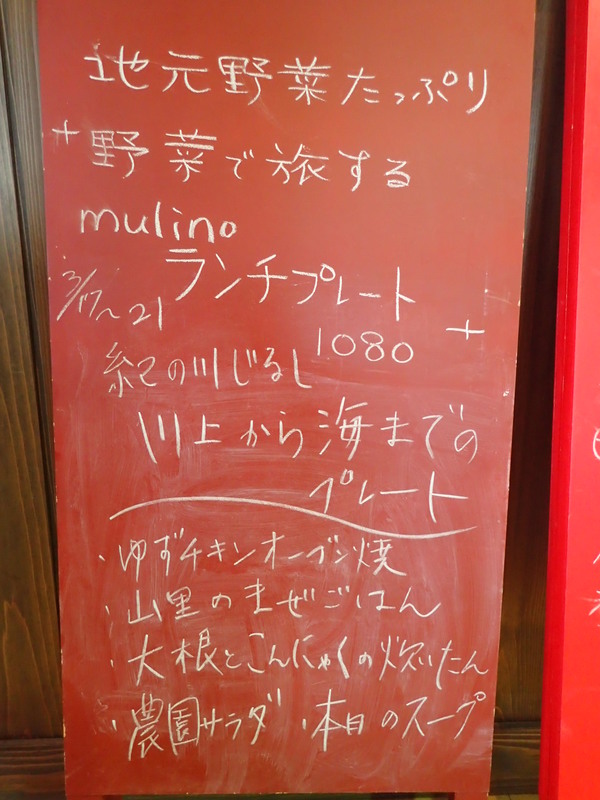 地元野菜たっぷり
+野菜で旅する
mulino
ランチプレート
3/17〜21
1080 +
紀の川じるし
川上から海までの
プレート
・ゆずチキンオーブン焼
・山里のまぜごはん
・大根とこんにゃくの炊いたん
・農園サラダ ・本日のスープ